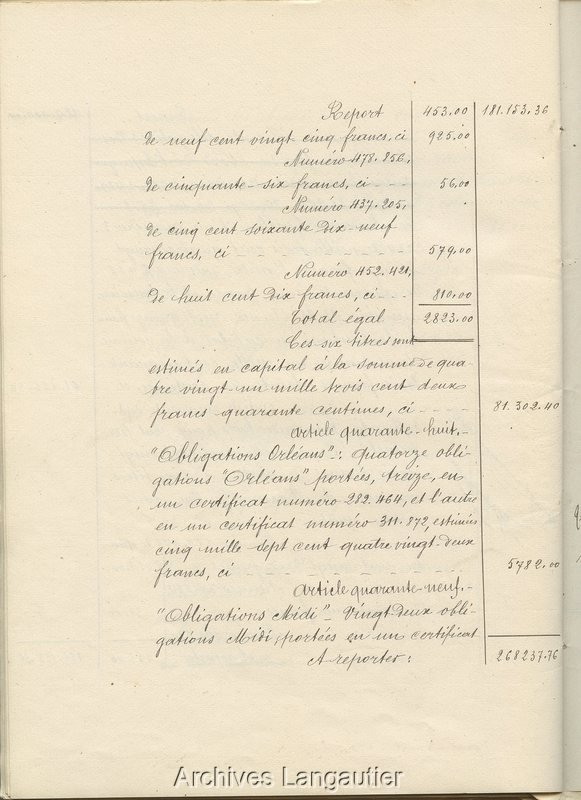 Report 453.00 181.153.36
de neuf cent vingt cinq francs, ci 925.00
Numéro 478.856,
de cinquante-six francs, ci - - - 56,00
Numéro 437.205,
de cinq cent soixante Dix-neuf
francs, ci - - - - - - - - 579,00
Numéro 452.421,
de huit cent Dix francs, ci - - - 810.00
Total égal 2823.00
Ces six titres sont
estimés en capital à la somme de qua-
tre vingt-un mille trois cent deux
francs quarante centimes, ci - - - - 81.302.40
Article quarante-huit.-
"Obligations Orléans"-: Quatorze obli-
gations "Orléans" portées, treize, en
un certificat numéro 282.464, et l'autre
en un certificat numéro 311.872, estimées
cinq mille sept cent quatre vingt-deux
francs, ci - - - - - - - - 5782.00
Article quarante-neuf.-
"Obligations Midi"- Vingt-Deux obli-
gations Midi, portées en un certificat
A reporter: 268237.76
Archives Langautier